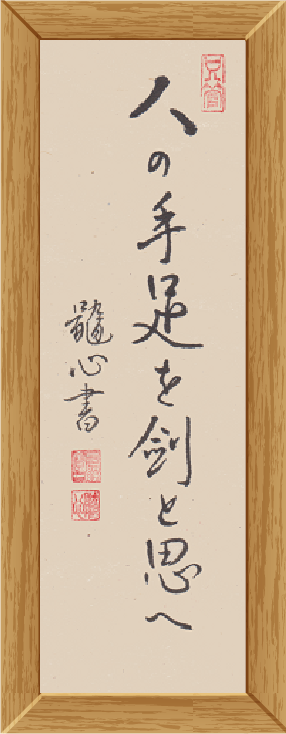 人の手足を剣と思へ
龍心書